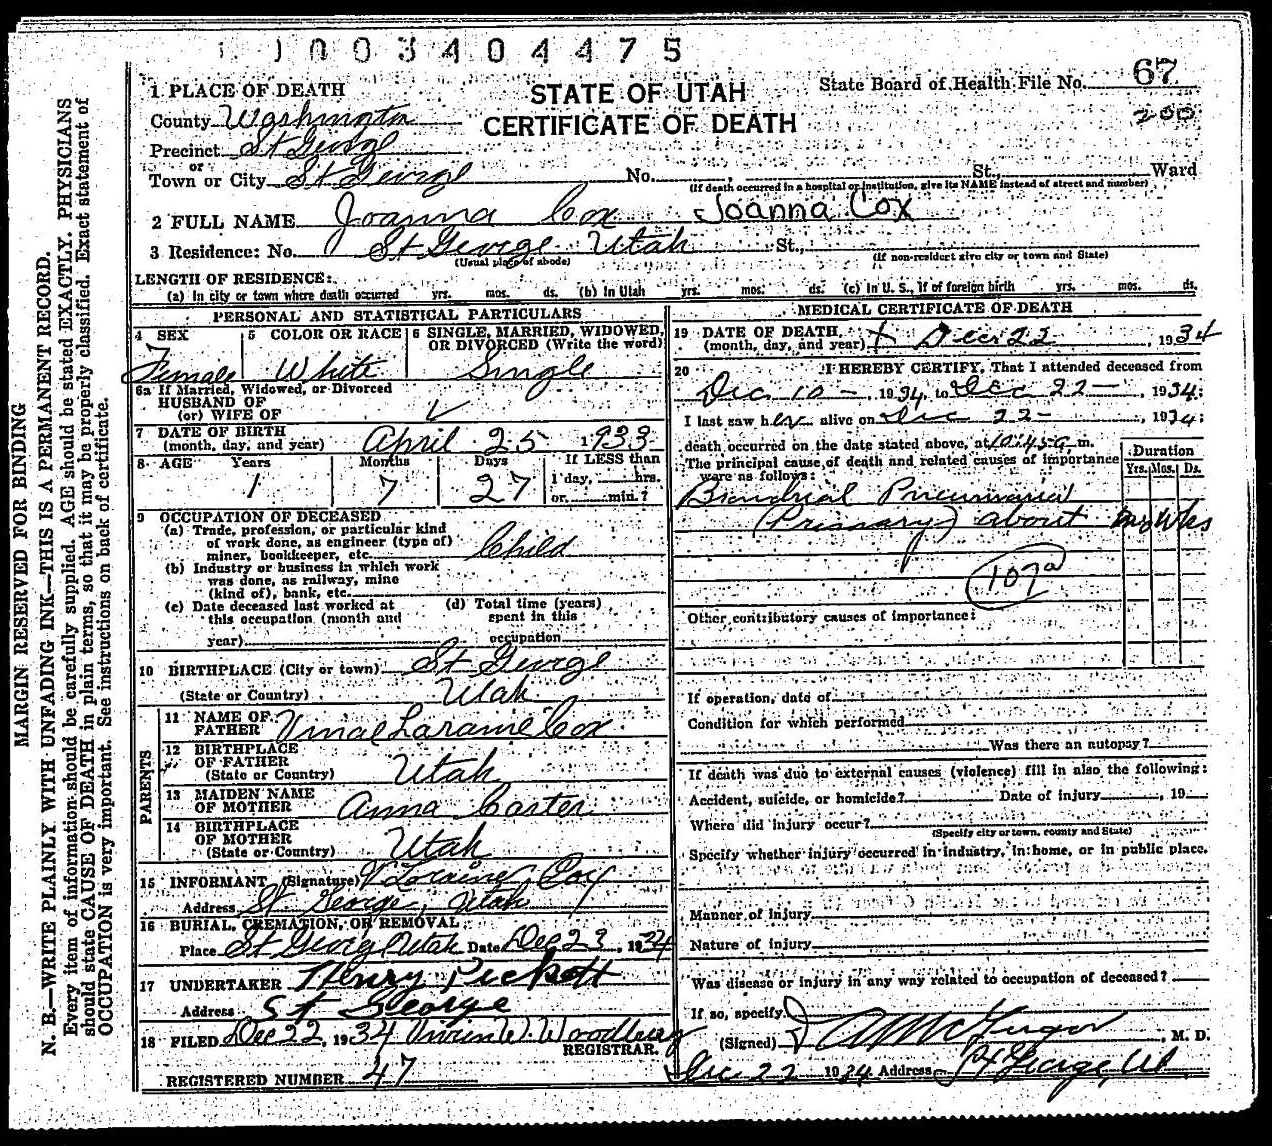 1003404475
1 PLACE OF DEATH
STATE OF UTAH
CERTIFICATE OF DEATH
State Board of Health File No. 67
200
County Washington
Precinct St George
or
Town or City St George No. St., Ward
(If death occurred in a hospital or institution, give its NAME instead of street and number)
2 FULL NAME Joanna Cox Joanna Cox
3 Residence: No. St George Utah St.,
(Usual place of abode) (If non-resident give city or town and State)
LENGTH OF RESIDENCE:
(a) In city or town where death occurred yrs. mos. ds. (b) In Utah yrs. mos. ds. (c) In U. S., if of foreign birth yrs. mos. ds.
PERSONAL AND STATISTICAL PARTICULARS
4 SEX
Female
5 COLOR OR RACE
White
6 SINGLE, MARRIED, WIDOWED,
OR DIVORCED (Write the word)
Single
6a If Married, Widowed, or Divorced
HUSBAND OF
(or) WIFE OF
7 DATE OF BIRTH
(month, day, and year) April 25 1933
8 AGE Years Months Days If LESS than
1 7 27 1 day, hrs.
or min.?
9 OCCUPATION OF DECEASED
(a) Trade, profession, or particular kind
of work done, as engineer (type of)
miner, bookkeeper, etc. Child
(b) Industry or business in which work
was done, as railway, mine
(kind of), bank, etc.
(c) Date deceased last worked at
this occupation (month and
year)
(d) Total time (years)
spent in this
occupation
10 BIRTHPLACE (City or town) St George
(State or Country) Utah
PARENTS
11 NAME OF
FATHER Cox
12 BIRTHPLACE
OF FATHER
(State or Country) Utah
13 MAIDEN NAME
OF MOTHER Anna Carter
14 BIRTHPLACE
OF MOTHER
(State or Country) Utah
15 INFORMANT (Signature) V Loraine Cox
Address St George, Utah
16 BURIAL, CREMATION, OR REMOVAL
Place St George Utah Date Dec 23, 1934
17 UNDERTAKER Henry Pickett
Address St George
18 FILED Dec 22 1934 Vivian W. Woodbury
REGISTRAR.
REGISTERED NUMBER 47
MEDICAL CERTIFICATE OF DEATH
19 DATE OF DEATH
(month, day, and year) Dec 22, 1934
20 I HEREBY CERTIFY, That I attended deceased from
Dec 10 - , 1934, to Dec 22 - , 1934;
I last saw her alive on Dec 22 - , 1934;
death occurred on the date stated above, at 10:45 a m.
The principal cause of death and related causes of importance
were as follows:
Duration
Yrs. Mos. Ds.
Bronchial Pneumonia
(Primary) about two wks
107a
Other contributory causes of importance:
If operation, date of
Condition for which performed
Was there an autopsy?
If death was due to external causes (violence) fill in also the following:
Accident, suicide, or homicide? Date of injury , 19
Where did injury occur?
(Specify city or town, county and State)
Specify whether injury occurred in industry, in home, or in public place.
Manner of Injury
Nature of injury
Was disease or injury in any way related to occupation of deceased?
If so, specify
(Signed) McGregor , M. D.
Dec 22 1934 Address St George, Ut.
MARGIN RESERVED FOR BINDING
N. B.—WRITE PLAINLY WITH UNFADING INK—THIS IS A PERMANENT RECORD.
Every item of information should be carefully supplied. AGE should be stated EXACTLY. PHYSICIANS
should state CAUSE OF DEATH in plain terms, so that it may be properly classified. Exact statement of
OCCUPATION is very important. See instructions on back of certificate.